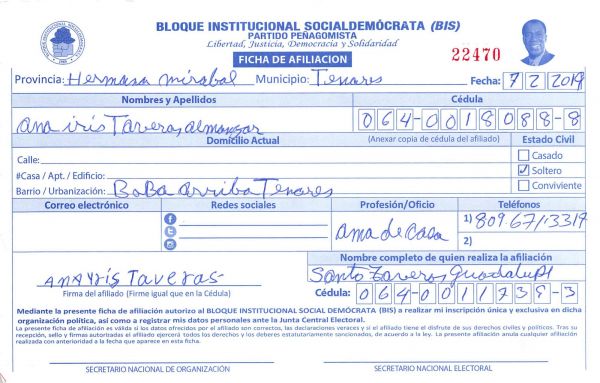 BLOQUE INSTITUCIONAL SOCIALDEMÓCRATA (BIS)
PARTIDO PEÑAGOMISTA
Libertad, Justicia, Democracia y Solidaridad
22470
FICHA DE AFILIACION
Provincia: Hermana mirabal Municipio: Tenares Fecha: 7/2/2019
Nombres y Apellidos Cédula
Ana iris Taveras almanzar 064-0018088-8
Domicilio Actual (Anexar copia de cédula del afiliado) Estado Civil
Calle: Casado
#Casa / Apt. / Edificio: Soltero
Barrio / Urbanización: BoBa arriba Tenares Conviviente
Correo electrónico Redes sociales Profesión/Oficio Teléfonos
Ama de Casa 1) 809.671-3319
2)
Nombre completo de quien realiza la afiliación
Ana yris Taveras Santo Taveras Guadalupe
Firma del afiliado (Firme igual que en la Cédula) Cédula: 064-0011739-3
Mediante la presente ficha de afiliación autorizo al BLOQUE INSTITUCIONAL SOCIAL DEMÓCRATA (BIS) a realizar mi inscripción única y exclusiva en dicha
organización política, así como a registrar mis datos personales ante la Junta Central Electoral.
La presente ficha de afiliación es válida si los datos ofrecidos por el afiliado son correctos, las declaraciones veraces y si el afiliado tiene el disfrute de sus derechos civiles y políticos. Tras su
recepción, sello y firmas autorizadas el afiliado ejercerá todos los derechos y los deberes estatutariamente sancionados, de acuerdo a la ley. La presente afiliación anula cualquier afiliación
realizada con anterioridad a la fecha que aparece en esta ficha.
SECRETARIO NACIONAL DE ORGANIZACIÓN SECRETARIO NACIONAL ELECTORAL